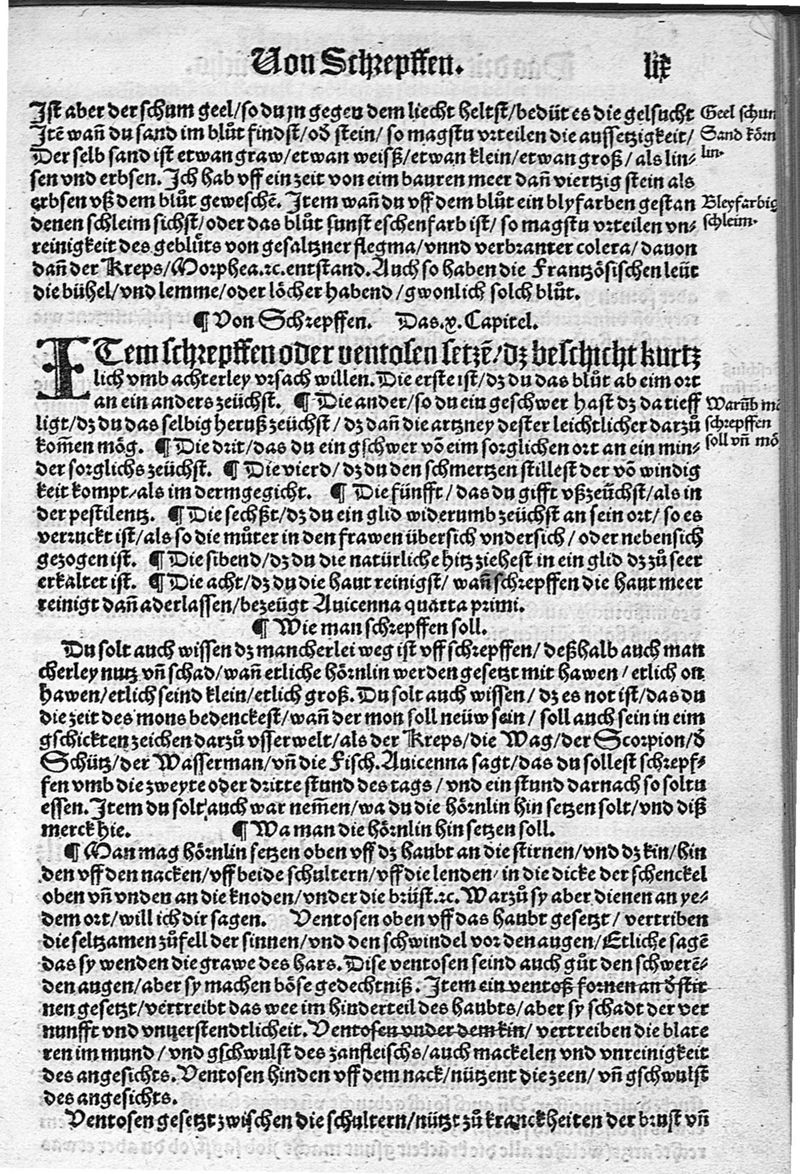 Von Schrepffen. lix
Ist aber der schum geel/so du jn gegen dem liecht heltst/bedüt es die gelsucht
Geel schum
Jtē wañ du sand im blůt findst/od̄ stein/so magstu vrteilen die aussetzigkeit/
Sand körn
Der selb sand ist etwan graw/etwan weiß/etwan klein/etwan groß/als lin-
lin.
sen vnd erbsen. Ich hab vff ein zeit von eim bauren meer dañ viertzig stein als
erbsen vß dem blůt geweschē. Item wañ du vff dem blůt ein blyfarben gestan
Bleyfarbig
denen schleim sichst/oder das blůt sunst eschenfarb ist/so magstu vrteilen vn-
schleim.
reinigkeit des geblůts von gesaltzner flegma/vnnd verbranter colera/dauon
dañ der Kreps/Morphea.rc.entstand. Auch so haben die Frantzösischen leüt
die bühel/vnd lemme/oder löcher habend/gwonlich solch blůt.
¶ Von Schrepffen. Das.x.Capitel.
ITem schrepffen oder ventosen setzē/dz beschicht kurtz
lich vmb achterley vrsach willen. Die erste ist/dz du das blůt ab eim ort
an ein anders zeüchst. ¶ Die ander/so du ein geschwer hast dz da tieff
Warūb mā
ligt/dz du das selbig heruß zeüchst/dz dañ die artzney dester leichtlicher darzů
schrepffen
kom̄en mög. ¶ Die drit/das du ein gschwer vō eim sorglichen ort an ein min-
soll vñ mö
der sorglichs zeüchst. ¶ Die vierd/dz du den schmertzen stillest der vō windig
keit kompt/als im dermgegicht. ¶ Die fünfft/das du gifft vßzeüchst/als in
der pestilentz. ¶ Die sechßt/dz du ein glid widerumb zeüchst an sein ort/so es
verruckt ist/als so die můter in den frawen übersich vndersich/oder nebensich
gezogen ist. ¶ Die sibend/dz du die natürliche hitz ziehest in ein glid dz zů seer
erkaltet ist. ¶ Die acht/dz du die haut reinigst/wañ schrepffen die haut meer
reinigt dañ aderlassen/bezeügt Auicenna quarta primi.
¶ Wie man schrepffen soll.
Du solt auch wissen dz mancherlei weg ist vff schrepffen/deßhalb auch man
cherley nutz vñ schad/wañ etliche hörnlin werden gesetzt mit hawen/etlich on
hawen/etlich seind klein/etlich groß. Du solt auch wissen/dz es not ist/das du
die zeit des mons bedenckest/wañ der mon soll neüw sein/soll auch sein in eim
gschickten zeichen darzů vsserwelt/als der Kreps/die Wag/der Scorpion/d̄
Schütz/der Wasserman/vñ die Fisch. Auicenna sagt/das du sollest schrep-
fen vmb die zweyte oder dritte stund des tags/vnd ein stund darnach so soltu
essen. Item du solt auch war nem̄en/wa du die hörnlin hin setzen solt/vnd diß
merck hie. ¶ Wa man die hörnlin hin setzen soll.
¶ Man mag hörnlin setzen oben vff dz haubt an die stirnen/vnd dz kin/hin
den vff den nacken/vff beide schultern/vff die lenden/in die dicke der schenckel
oben vñ vnden an die knoden/vnder die brüst.rc. Warzů sy aber dienen an ye-
dem ort/will ich dir sagen. Ventosen oben vff das haubt gesetzt/vertriben
die seltzamen zůfell der sinnen/vnd den schwindel vor den augen/Etliche sagē
das sy wenden die grawe des hars. Dise ventosen seind auch gůt den schwerē-
den augen/aber sy machen böse gedechtniß. Item ein ventoß fornen an d̄ stir
nen gesetzt/vertreibt das wee im hinderteil des haubts/aber sy schadt der ver
nunfft vnd vnuerstendtlicheit. Ventosen vnder dem kin/vertreiben die blate
ren im mund/vnd gschwulst des zanfleischs/auch mackelen vnd vnreinigkeit
des angesichts. Ventosen hinden vff dem nack/nützent die zeen/vñ gschwulst
des angesichts.
Ventosen gesetzt zwischen die schultern/nützt zů kranckheiten der brust vñ